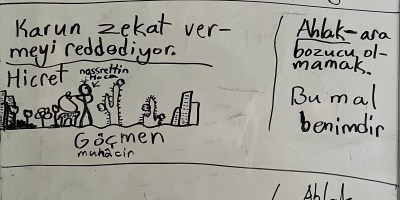 Karun zekat ver-
meyi reddediyor.
Hicret
nasrettin
Hoca
Göçmen
muhâcir
Ahlak-ara
bozucu ol-
mamak.
Bu mal
benimdir
Ahlak